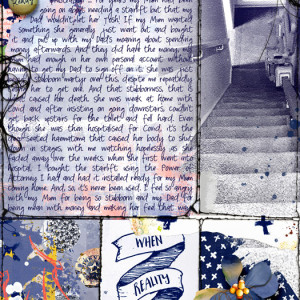 for years my Mum had been
going on about needing a stairlift but that my
Dad wouldn't let her. Yeah! If my Mum wanted
something she generally just went out and bought
it and put up with my Dad's moaning about spending
money afterwards. And they did have the money.
had enough in her own personal account without
to get my Dad to sign off on it she was just
stubborn martyr over this despite me repeatedly
her to get one. And that stubbornness, that is
caused her death. She was weak at home with
and after insisting on going downstairs, couldn't
back upstairs for the toilet and fell hard. Even
though she was then hospitalised for Covid, it's the
hematoma that caused her body to shut
down in stages, with me watching hopelessly as she
faded away over the weeks. When she first went into
hospital I bought the stairlift using the Power of
Attorney I had and had it installed ready for my Mum
coming home. And, so it's never been used. I feel so angry
with my Mum for being so stubborn and my Dad for
being mean with money and making her feel that way.
WHEN
REALITY